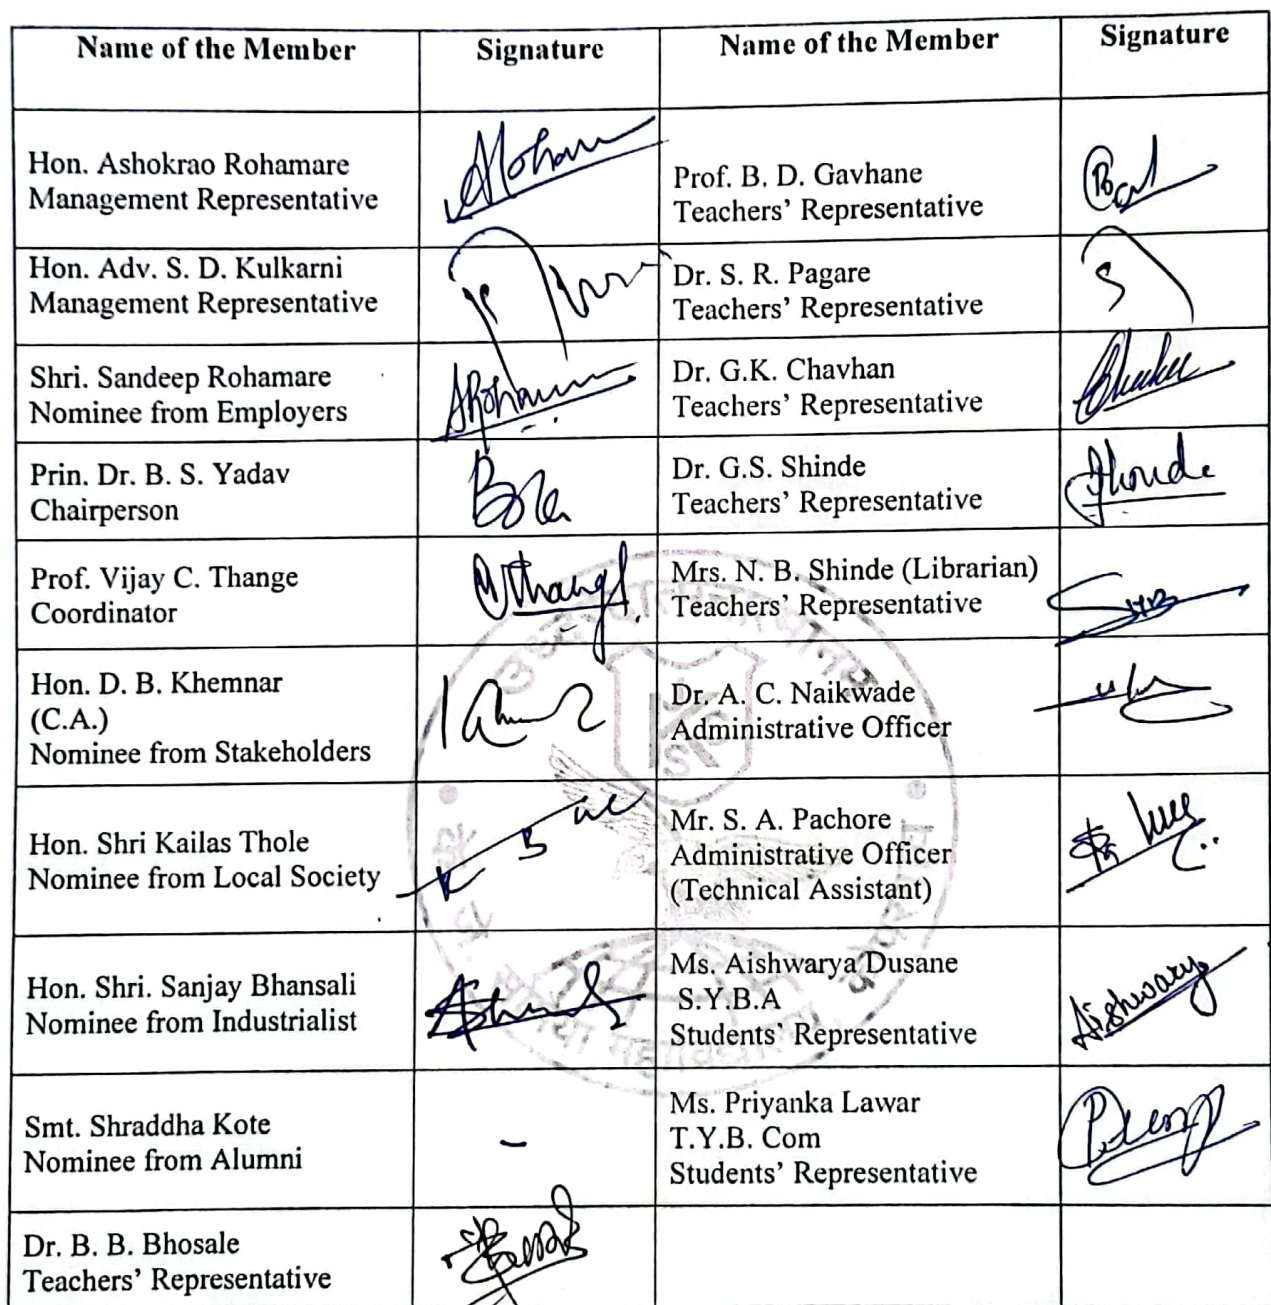 Name of the Member
Signature
Name of the Member
Signature
Hon. Ashokrao Rohamare
Management Representative
Prof. B. D. Gavhane
Teachers' Representative
Hon. Adv. S. D. Kulkarni
Management Representative
Dr. S. R. Pagare
Teachers' Representative
Shri. Sandeep Rohamare
Nominee from Employers
Dr. G.K. Chavhan
Teachers' Representative
Prin. Dr. B. S. Yadav
Chairperson
Dr. G.S. Shinde
Teachers' Representative
Prof. Vijay C. Thange
Coordinator
Mrs. N. B. Shinde (Librarian)
Teachers' Representative
Hon. D. B. Khemnar
(C.A.)
Nominee from Stakeholders
Dr. A. C. Naikwade
Administrative Officer
Hon. Shri Kailas Thole
Nominee from Local Society
Mr. S. A. Pachore
Administrative Officer
(Technical Assistant)
Hon. Shri. Sanjay Bhansali
Nominee from Industrialist
Ms. Aishwarya Dusane
S.Y.B.A
Students' Representative
Aishwarya
Smt. Shraddha Kote
Nominee from Alumni
-
Ms. Priyanka Lawar
T.Y.B. Com
Students' Representative
Dr. B. B. Bhosale
Teachers' Representative